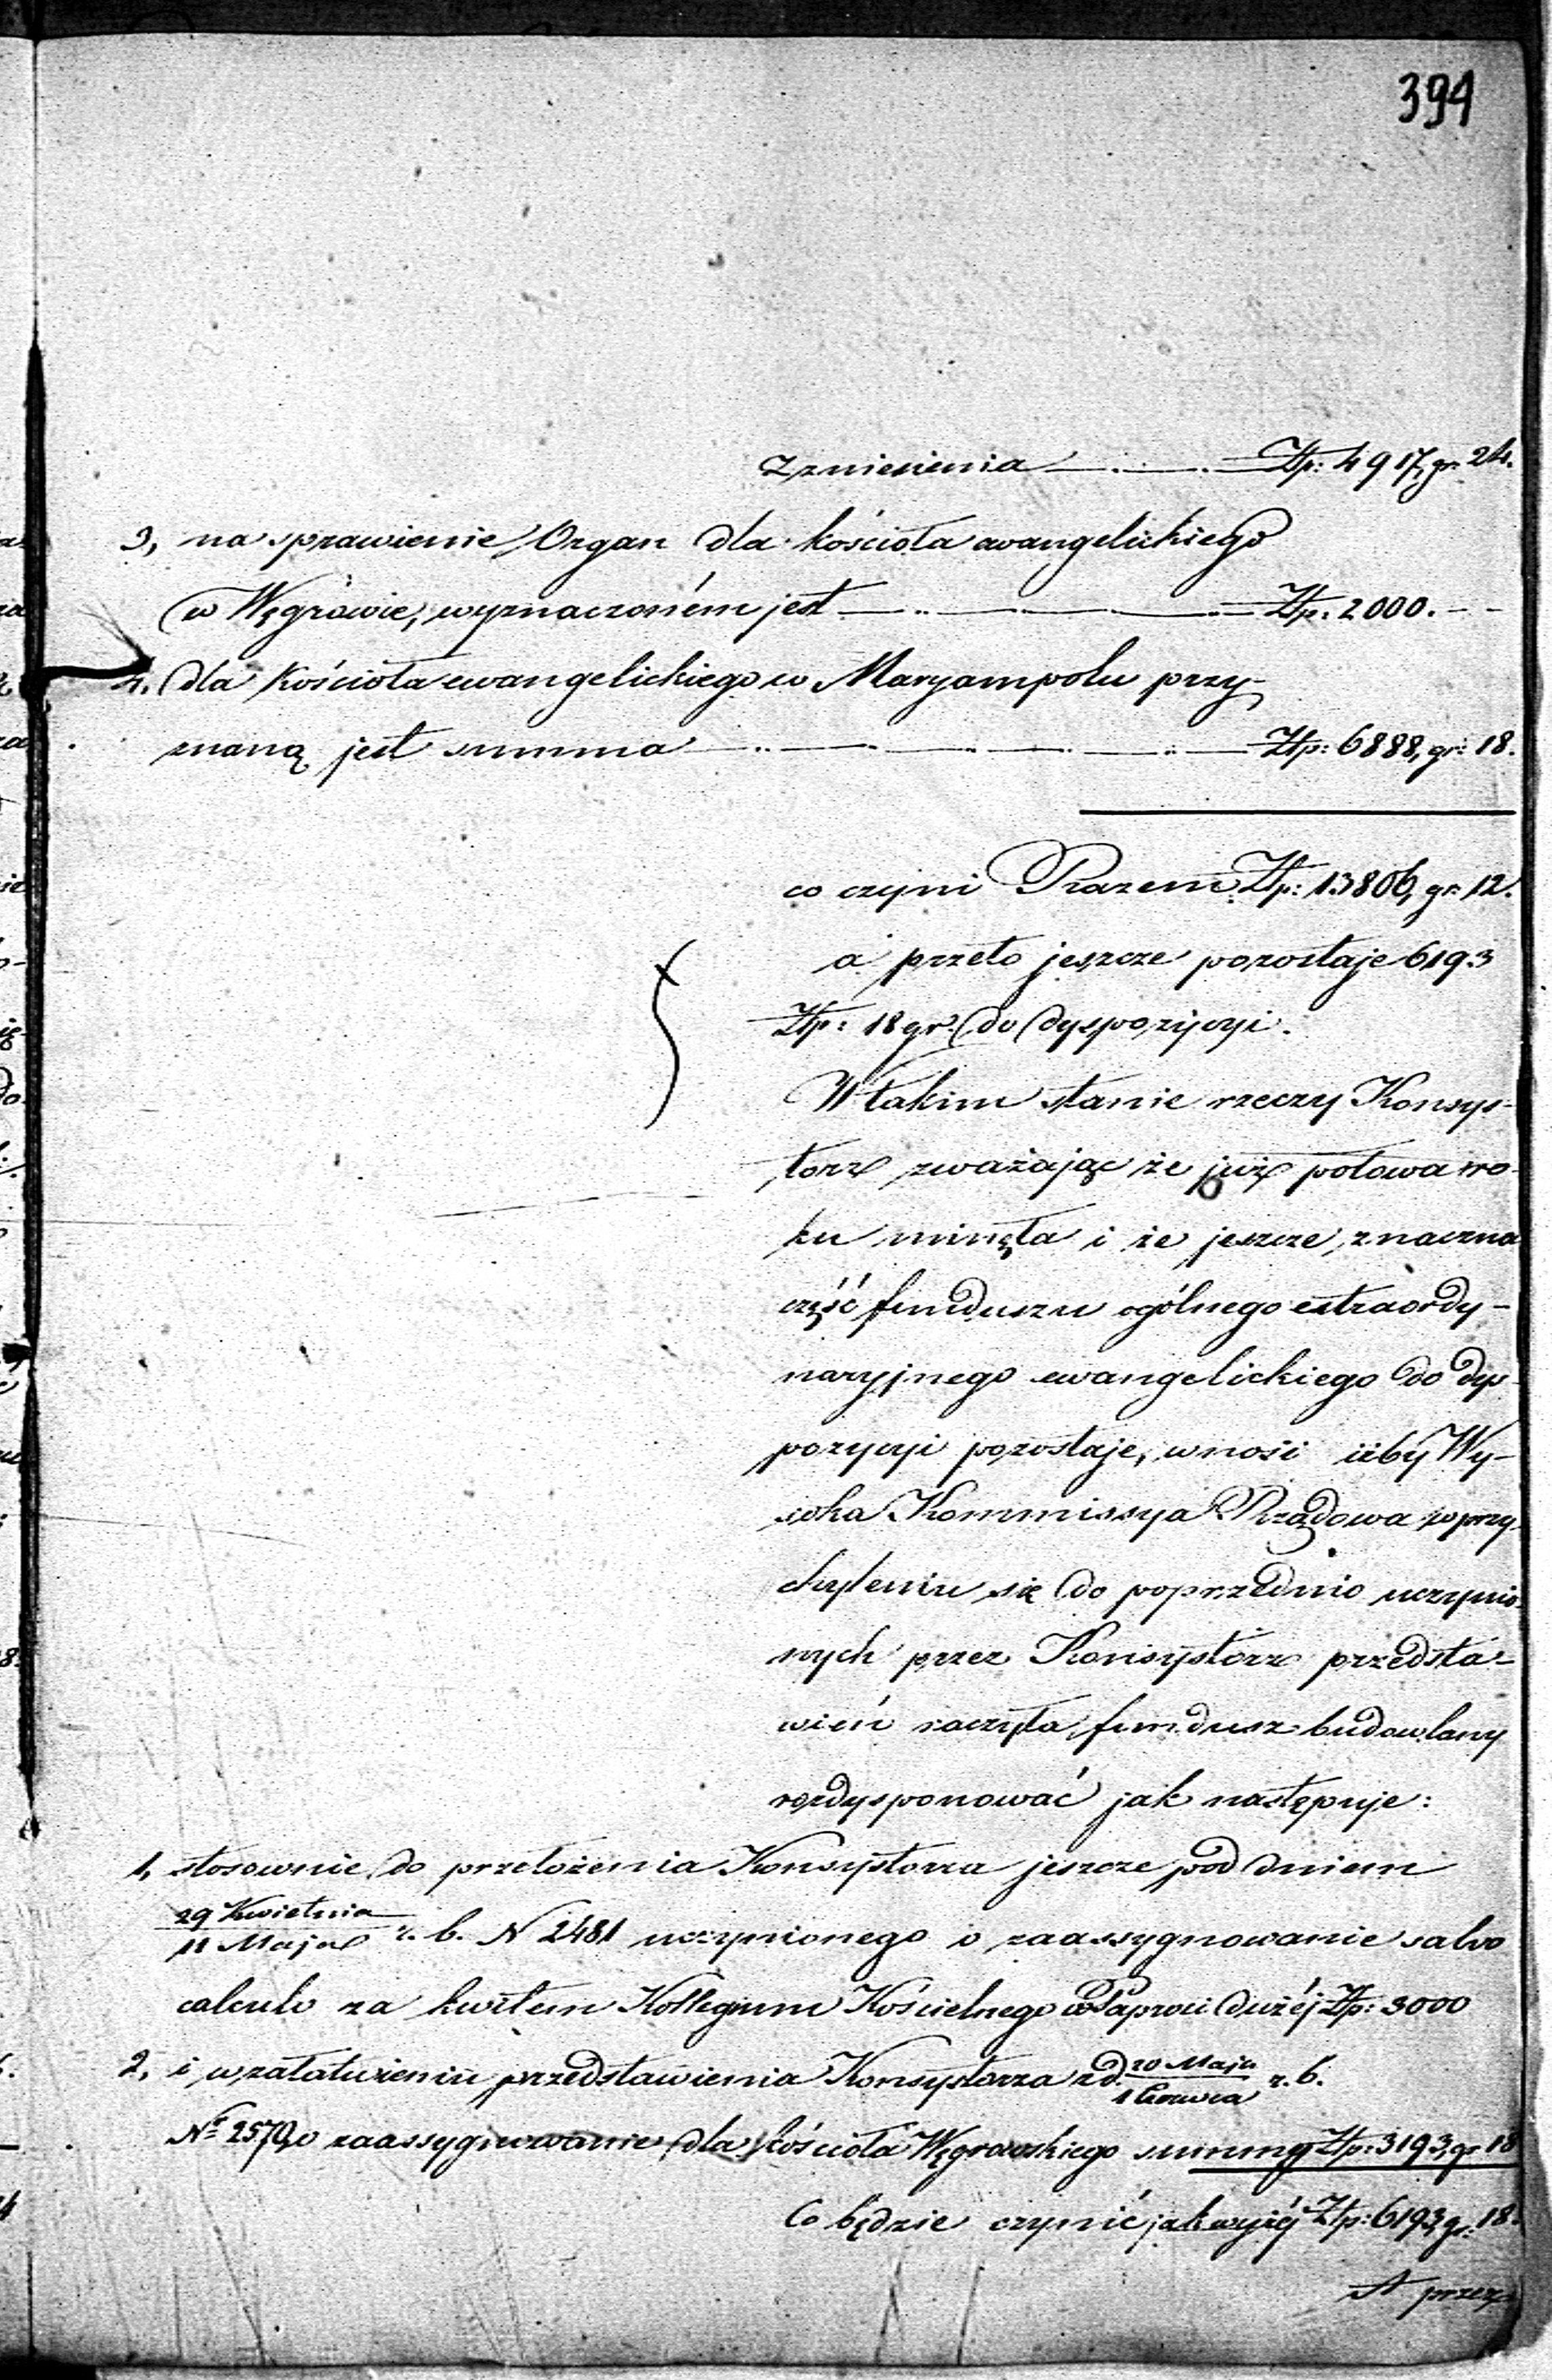 394
Z zniesienia Złp: 4917, gr. 24.
3, na sprawienie Organ dla kościoła ewangelickiego
w Węgrowie, wyznaczoném jest Złp: 2000. - -
4. dla Kościoła ewangelickiego w Maryampolu przy-
znaną jest summa Złp: 6888, gr: 18.
co czyni Razem Złp: 13806, gr. 12.
a przeto jeszcze pozostaje 6193
Złp: 18 gr. do dyspozycyi.
W takim stanie rzeczy Konsys-
torz zważając że już połowa ro-
ku minęła i że jeszcze znaczna
część funduszu ogólnego extraordy-
naryjnego ewangelickiego do dys-
pozycyi pozostaje, wnosi iżby Wy-
soka Kommissya Rządowa w przy-
chyleniu się do poprzednio uczynio-
nych przez Konsystorz przedsta-
wień raczyła fundusz budowlany
rozdysponować jak następuje:
1, stosownie do przełożenia Konsystorza jeszcze pod dniem
29 Kwietnia
11 Maja r. b. N 2481 uczynionego o zaassygnowanie salvo
calculo za kwitem Kollegium Kościelnego w Paproci dużéj Złp: 3000
2, i w załatwieniu przedstawienia Konsystorza z d. 20 Maja
1 Czerwca r. b.
Nº 2570, o zaassygnowanie dla kościoła Węgrowskiego summy Złp: 3193, gr. 18
Co będzie czynić jak wyżéj Złp: 6193, gr. 18.
A przez